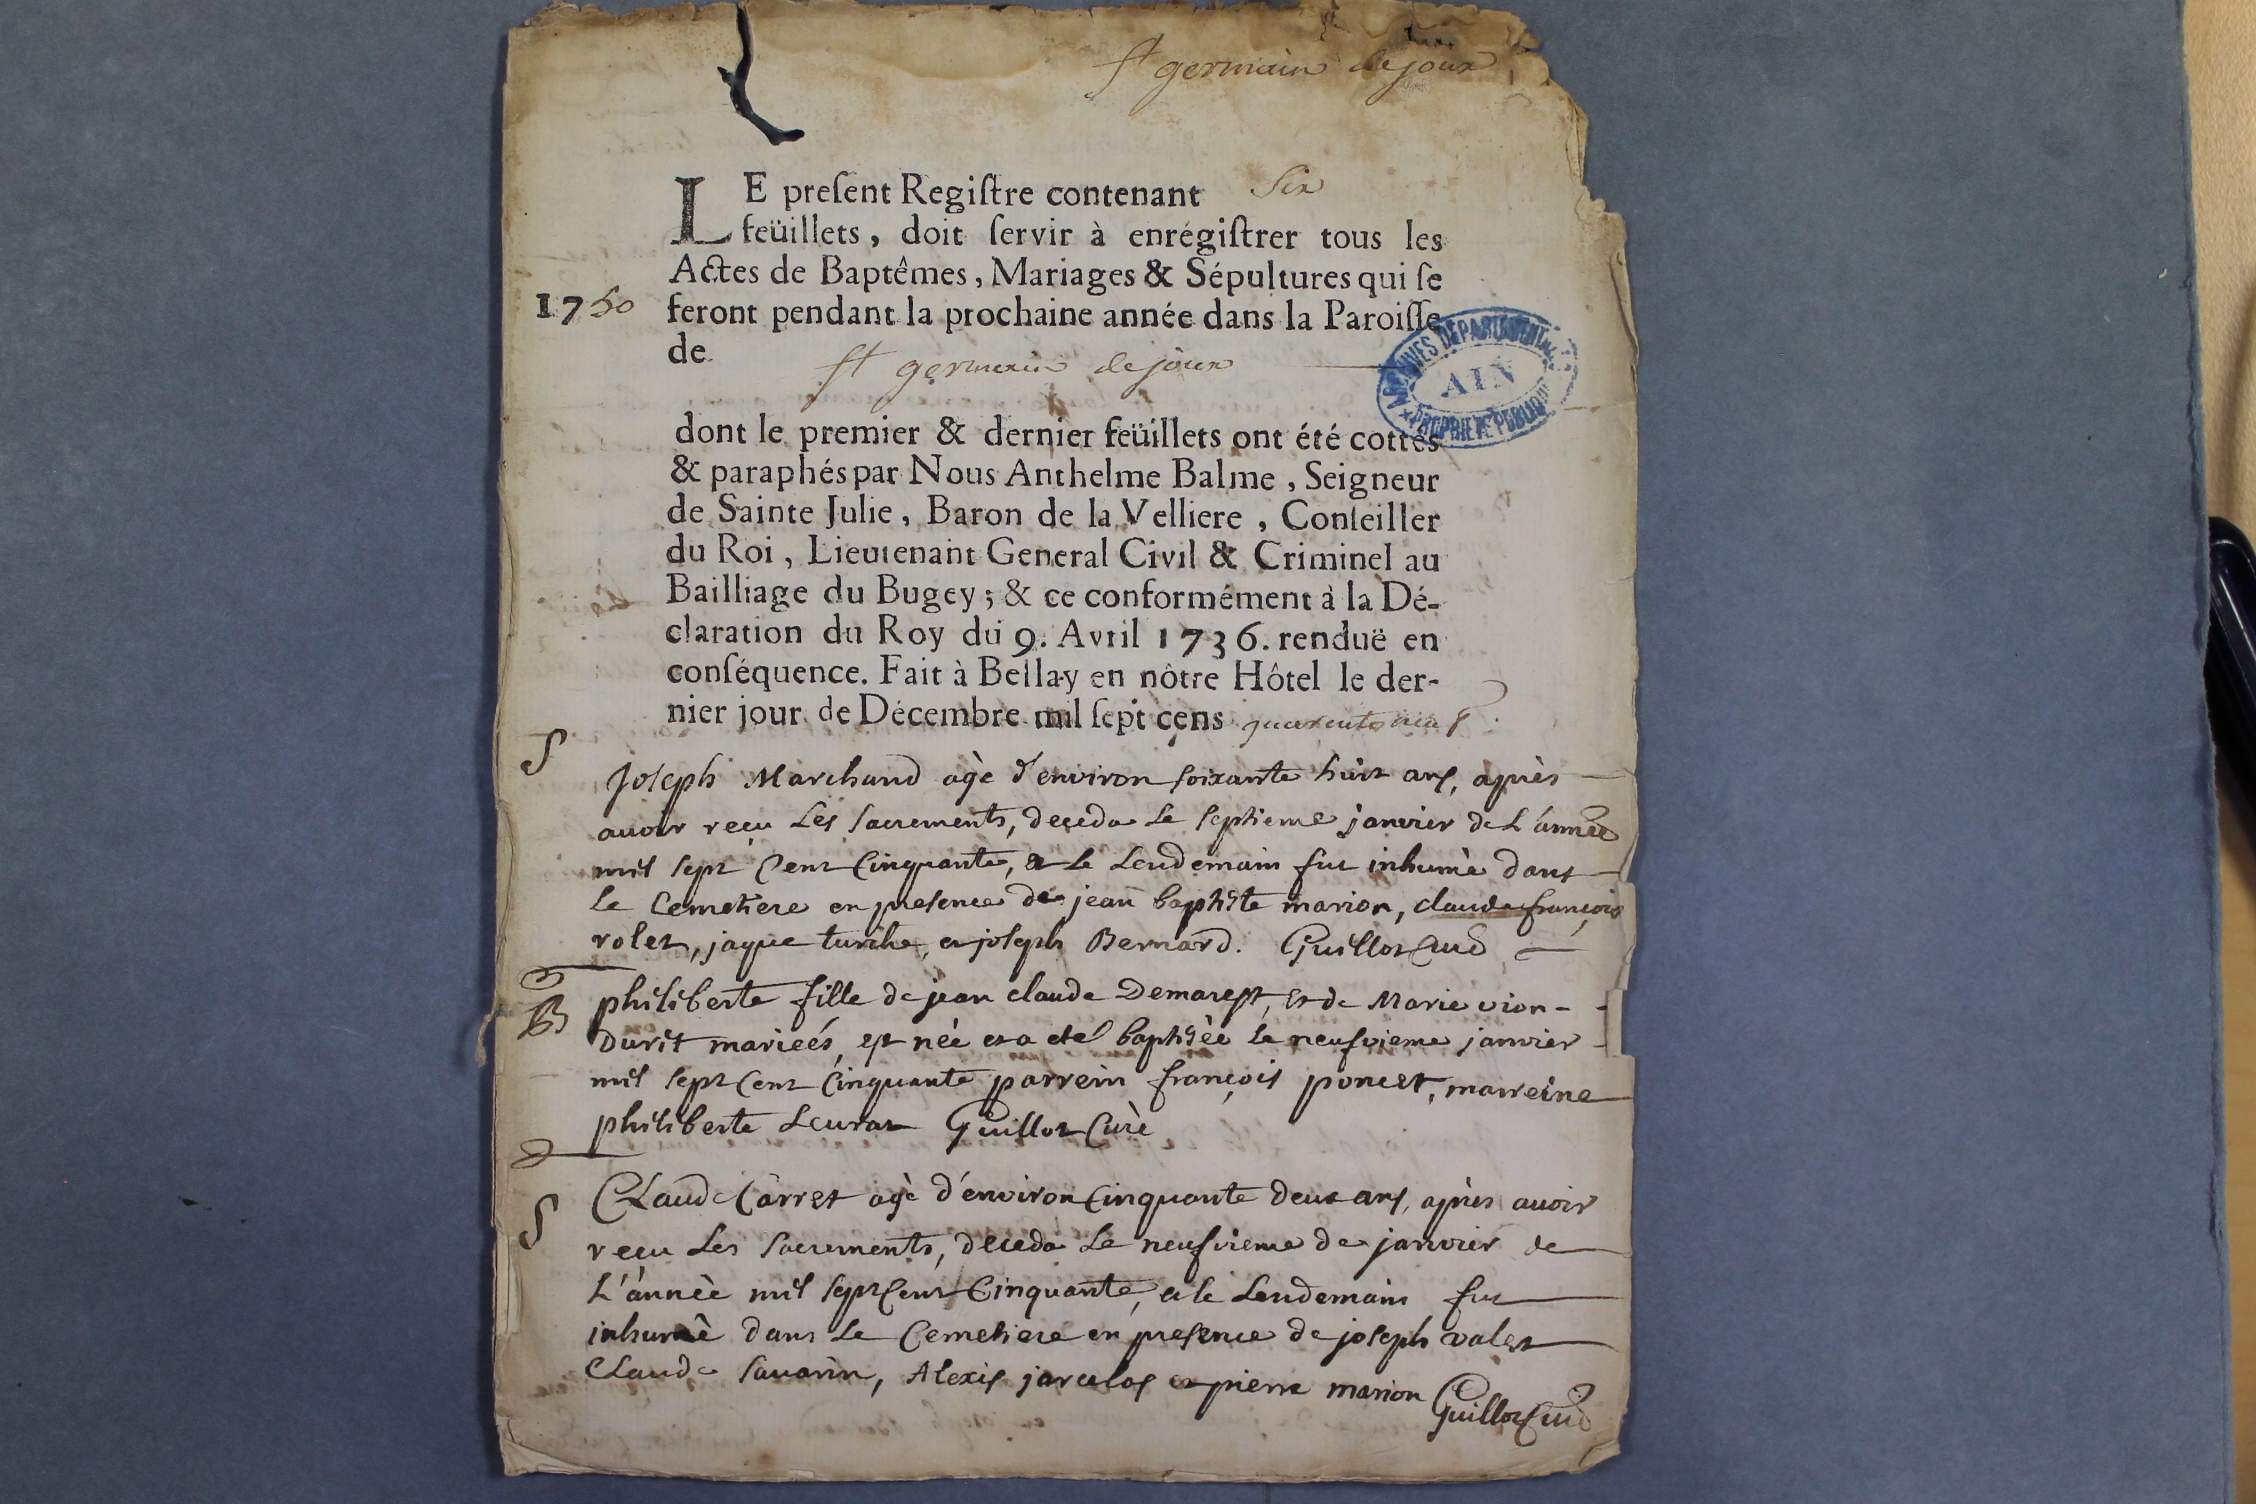 st germain de joux
LE preſent Regiſtre contenant six
feüillets, doit ſervir à enrégiſtrer tous les
Actes de Baptêmes, Mariages & Sépultures qui ſe
1750
feront pendant la prochaine année dans la Paroiſſe
de
st germain de joux
ARCHIVES DEPARTEMENTALES
AIN
PROPRIETE PUBLIQUE
dont le premier & dernier feüillets ont été cottés
& paraphés par Nous Anthelme Balme, Seigneur
de Sainte Julie, Baron de la Velliere, Conſeiller
du Roi, Lieutenant General Civil & Criminel au
Bailliage du Bugey; & ce conformément à la Dé-
claration du Roy du 9. Avril 1736. renduë en
conſéquence. Fait à Bellay en nôtre Hôtel le der-
nier jour de Décembre mil ſept cens quarente neuf
S
Joseph Marchand agè d'environ soixante huit ans, après
avoir reçu Les sacrements, deceda le septieme janvier de L'année
mil sept Cent Cinquante, et le Lendemain fut inhumè dans
le Cemetiere en presence de jean baptiste marion, claude françois
rolet, jaque turche, et joseph Bernard. Guillot Curé
B
philiberte fille de jean claude Demarest, et de Marie vion-
Durit marieés, est née et a eté baptisèe le neufvieme janvier
mil sept Cent Cinquante parrein françois poncet, marreine
philiberte Leurat Guillot Curè
S
CLaude Carret agè d'environ Cinquante deux ans, après avoir
reçu Les sacrements, deceda Le neufvieme de janvier de
L'année mil sept Cent Cinquante, et le Lendemain fut
inhumè dans Le Cemetiere en presence de joseph valet
CLaude savarin, Alexis et pierre marion
Guillot Curé